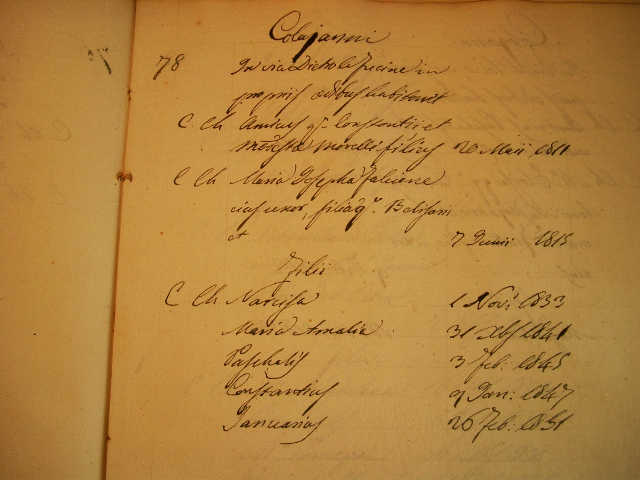 Colajanni
78 In via Dietro le Fucine in
propriis ædibus habitavit
C. Ch Amicus q.m Constantii et
Modestæ Morelli filius 20 Maii 1811
C Ch Maria Josepha Falcione
eius uxor, filia q.m Belisarii
et 7 Junii 1815
Filii
C Ch Narcisa 1 Nov: 1833
Maria Amalia 31 Xbs 1841
Paschalis 3 Feb: 1845
Constantius 9 Jan: 1847
Januarius 26 Feb: 1851